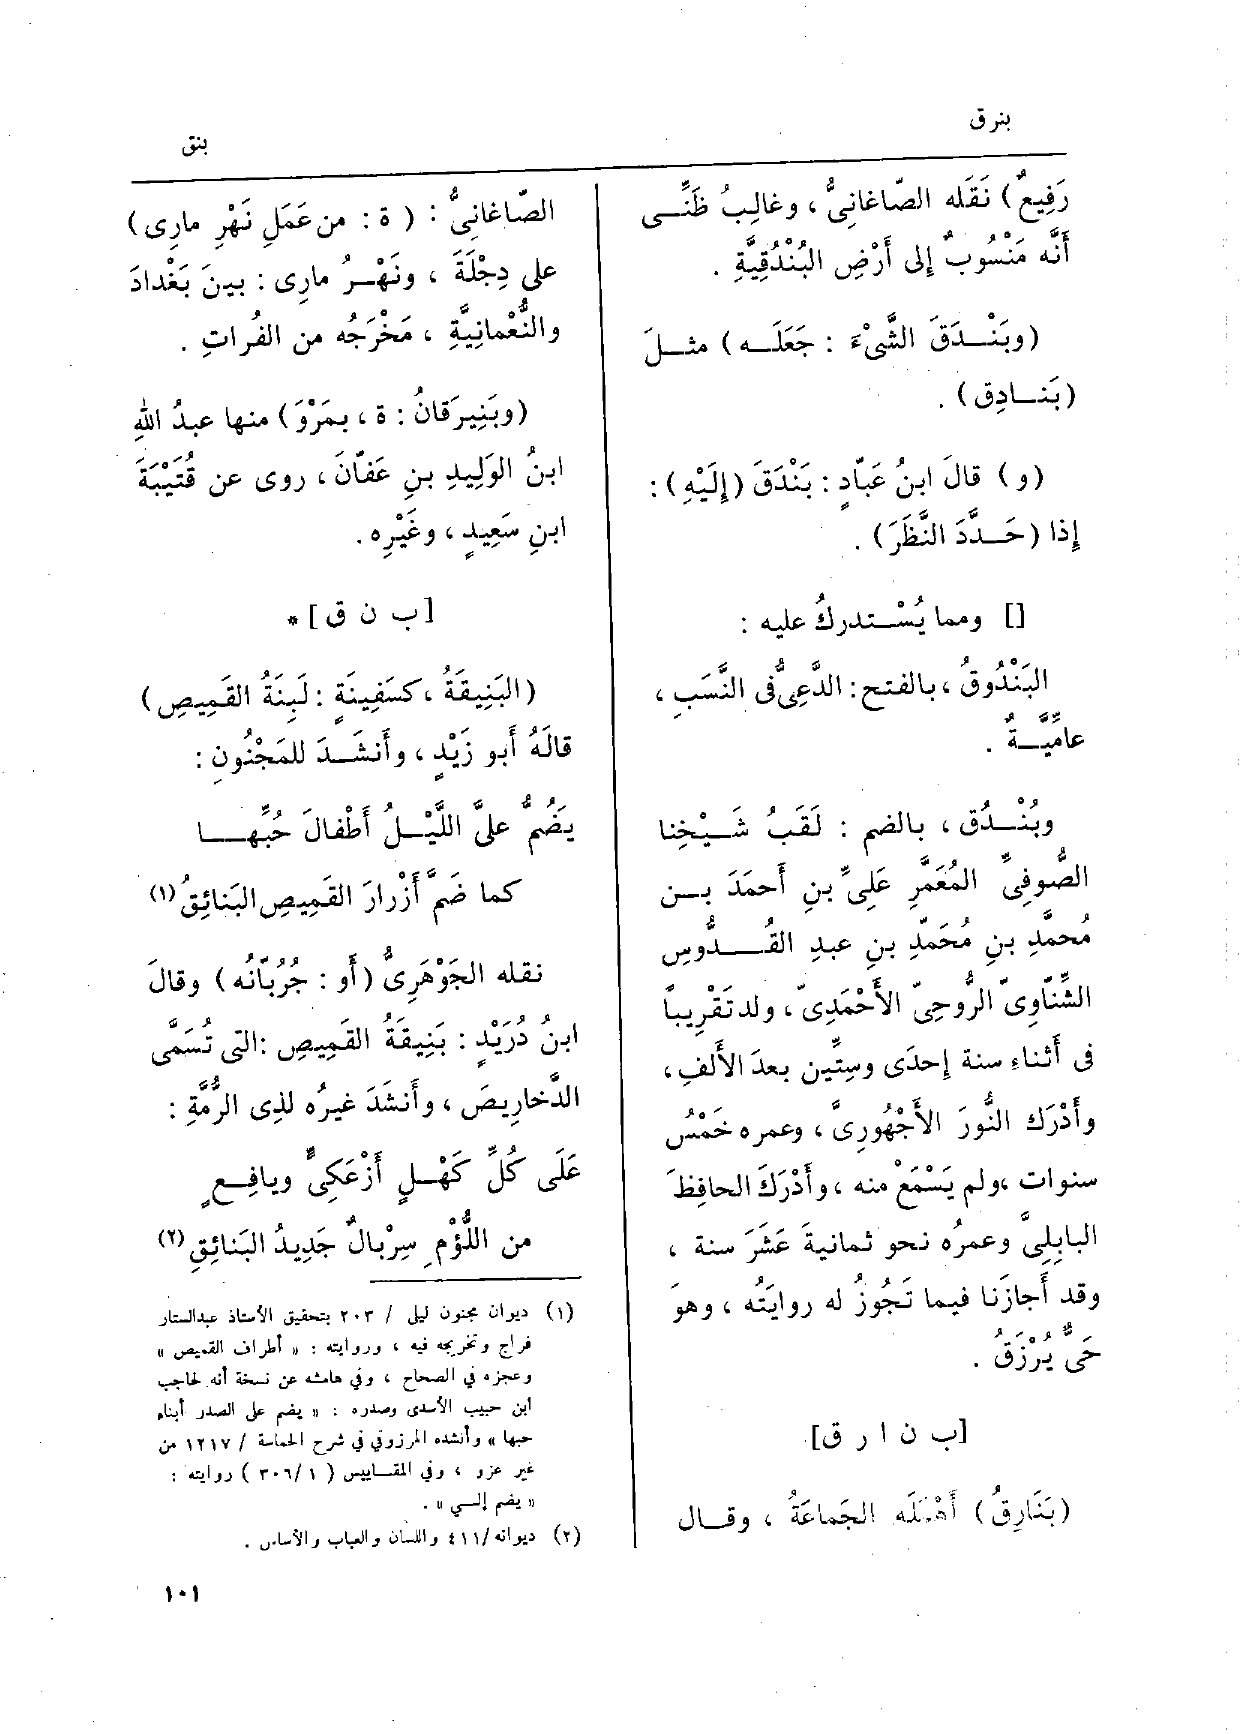 بنرق
بنق
رَفِيعٌ) نَقَله الصّاغانِيُّ ، وغالِبُ ظَنِّــى
أَنَّه مَنْسُوبٌ إلى أَرْضِ البُنْدُقِيَّةِ .
(وبَنْــدَقَ الشَّىْءَ : جَعَلَــه) مثــلَ
(بَنــادِق) .
(و) قالَ ابنُ عَبّادٍ : بَنْدَقَ (إِلَيْهِ) :
إِذا (حَــدَّدَ النَّظَرَ) .
[] ومما يُسْــتدركُ عليه :
البَنْدُوقُ ، بالفتح : الدَّعِىُّ فى النَّسَبِ ،
عامِّيَّــةٌ .
وبُنْــدُق ، بالضم : لَقَبُ شَــيْخِنا
الصُّوفِىِّ المُعَمَّرِ عَلِىِّ بنِ أَحمَدَ بــن
مُحمَّدِ بنِ مُحَمّدِ بنِ عبدِ القُــــدُّوسِ
الشِّنّاوِىّ الرُّوحِىّ الأَحْمَدِىّ ، ولد تَقْرِيباً
فى أَثْناءِ سنة إحدَى وسِتِّين بعدَ الأَلْفِ ،
وأَدْرَك النُّورَ الأُجْهُورِىَّ ، وعمره خَمْسُ
سنوات ،ولم يَسْمَعْ منه ، وأَدْرَكَ الحافِظَ
البابِلِىَّ وعمرُه نحو ثمانيةَ عَشَرَ سنة ،
وقد أَجازَنا فيما تَجُوزُ له روايَتُه ، وهوَ
حَىٌّ يُرْزَقُ .
[ب ن ا ر ق]
(بَنارِقُ) أَهْمَلَه الجَماعَةُ ، وقــال
الصّاغانِىُّ : ( ة : من عَمَلِ نَهْرِ مارِى)
على دِجْلَةَ ، ونَهْــرُ مارِى : بينَ بَغْدادَ
والنُّعْمانِيَّةِ ، مَخْرَجُه من الفُراتِ .
(وبَنِيرَقانُ : ة ، بمَرْوَ) منها عبدُ اللهِ
ابنُ الوَلِيدِ بنِ عَفّانَ ، روى عن قُتَيْبَةَ
ابنِ سَعِيدٍ ، وغَيْرِه .
[ب ن ق] *
(البَنِيقَةُ ، كسَفِينَةٍ : لَبِنَةُ القَمِيصِ)
قالَهُ أَبو زَيْدٍ ، وأَنشَــدَ للمَجْنُونِ :
يَضُمُّ علىَّ اللَّيْــلُ أَطْفالَ حُبِّهــــا
كما ضَمَّ أَزْرارَ القَمِيصِ البَنائِقُ (١)
نقله الجَوْهَرِىُّ (أَو : جُرُبّانُه) وقالَ
ابنُ دُرَيْدٍ : بَنِيقَةُ القَمِيصِ :التى تُسَمَّى
الدَّخارِيصَ ، وأَنشَدَ غيرُه لذِى الرُّمَّةِ :
عَلَى كُلِّ كَهْــلٍ أَزْعَكِىٍّ ويافِــعٍ
من اللُّؤْمِ سِرْبالٌ جَدِيدُ البَنائِقِ (٢)
(١) ديوان مجنون ليلى / ٢٠٣ بتحقيق الأستاذ عبدالستار
فراج وتخريجه فيه ، وروايته : « أطراف القميص »
وعجزه في الصحاح ، وفي هامشه عن نسخة أنه لحاجب
ابن حبيب الأسدى وصدره : « يضم على الصدر أبناء
حبها » وأنشده المرزوقي في شرح الحماسة / ١٢١٧ من
غير عزو ، وفي المقــاييس ( ١ /٣٠٦ ) روايته :
« يضم إلــي » .
(٢) ديوانه /٤١١ واللسان والعباب والأساس .
١٠١